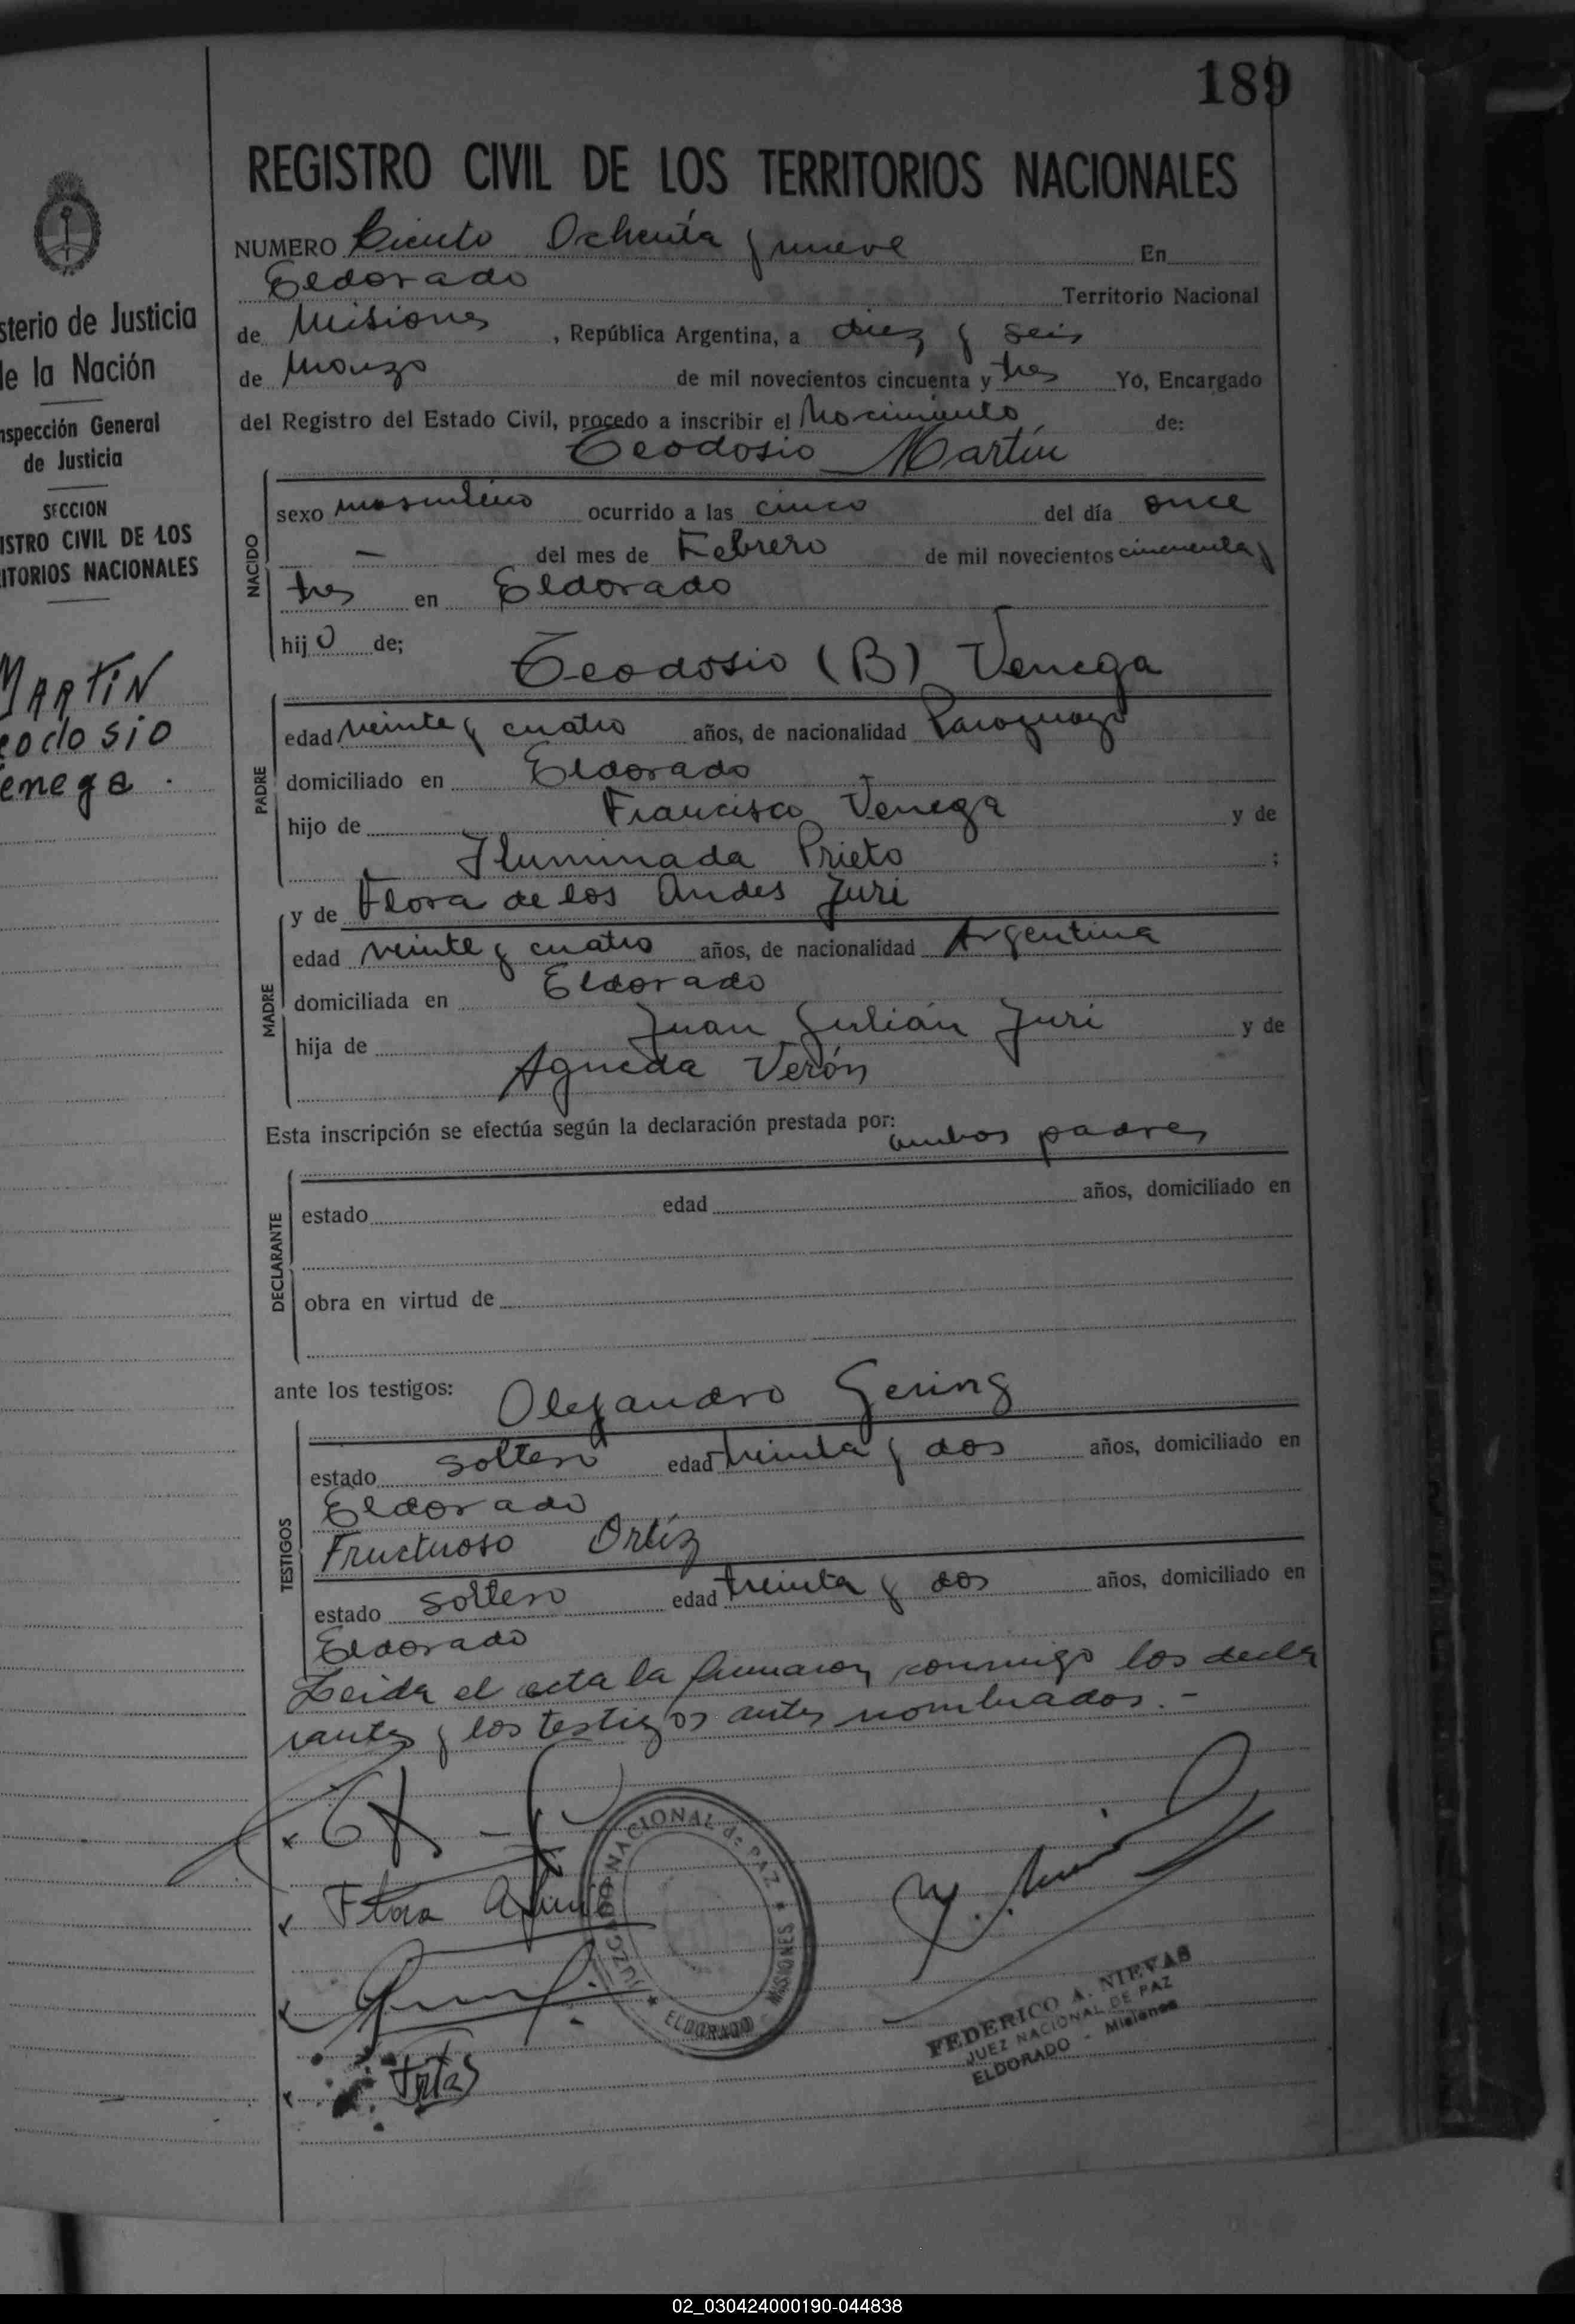 189
sterio de Justicia
e la Nación
nspección General
de Justicia
SECCION
ISTRO CIVIL DE LOS
ITORIOS NACIONALES
MARTIN
eodosio
enega.
REGISTRO CIVIL DE LOS TERRITORIOS NACIONALES
NUMERO Ciento Ochenta y nueve En
Eldorado Territorio Nacional
de Misiones, República Argentina, a diez y seis
de Marzo de mil novecientos cincuenta y tres Yo, Encargado
del Registro del Estado Civil, procedo a inscribir el Nacimiento de:
Teodosio Martín
NACIDO
sexo masculino ocurrido a las cinco del día once
— del mes de Febrero de mil novecientos cincuenta y
tres en Eldorado
hijo de;
Teodosio (B) Venega
PADRE
edad veinte y cuatro años, de nacionalidad Paraguayo
domiciliado en Eldorado
hijo de Francisco Venega y de
Iluminada Prieto ;
y de Flora de los Andes Juri
MADRE
edad veinte y cuatro años, de nacionalidad Argentina
domiciliada en Eldorado
hija de Juan Julián Juri y de
Agueda Verón
Esta inscripción se efectúa según la declaración prestada por:
ambos padres
DECLARANTE
estado edad años, domiciliado en
obra en virtud de
ante los testigos: Alejandro Gering
TESTIGOS
estado soltero edad treinta y dos años, domiciliado en
Eldorado
Fructuoso Ortíz
estado soltero edad treinta y dos años, domiciliado en
Eldorado
Leida el acta la firmaron conmigo los decla
rantes y los testigos antes nombrados.-
Flora
JUZGADO NACIONAL de PAZ
ELDORADO MISIONES
FEDERICO A. NIEVAS
JUEZ NACIONAL DE PAZ
ELDORADO - Misiones
02_030424000190-044838